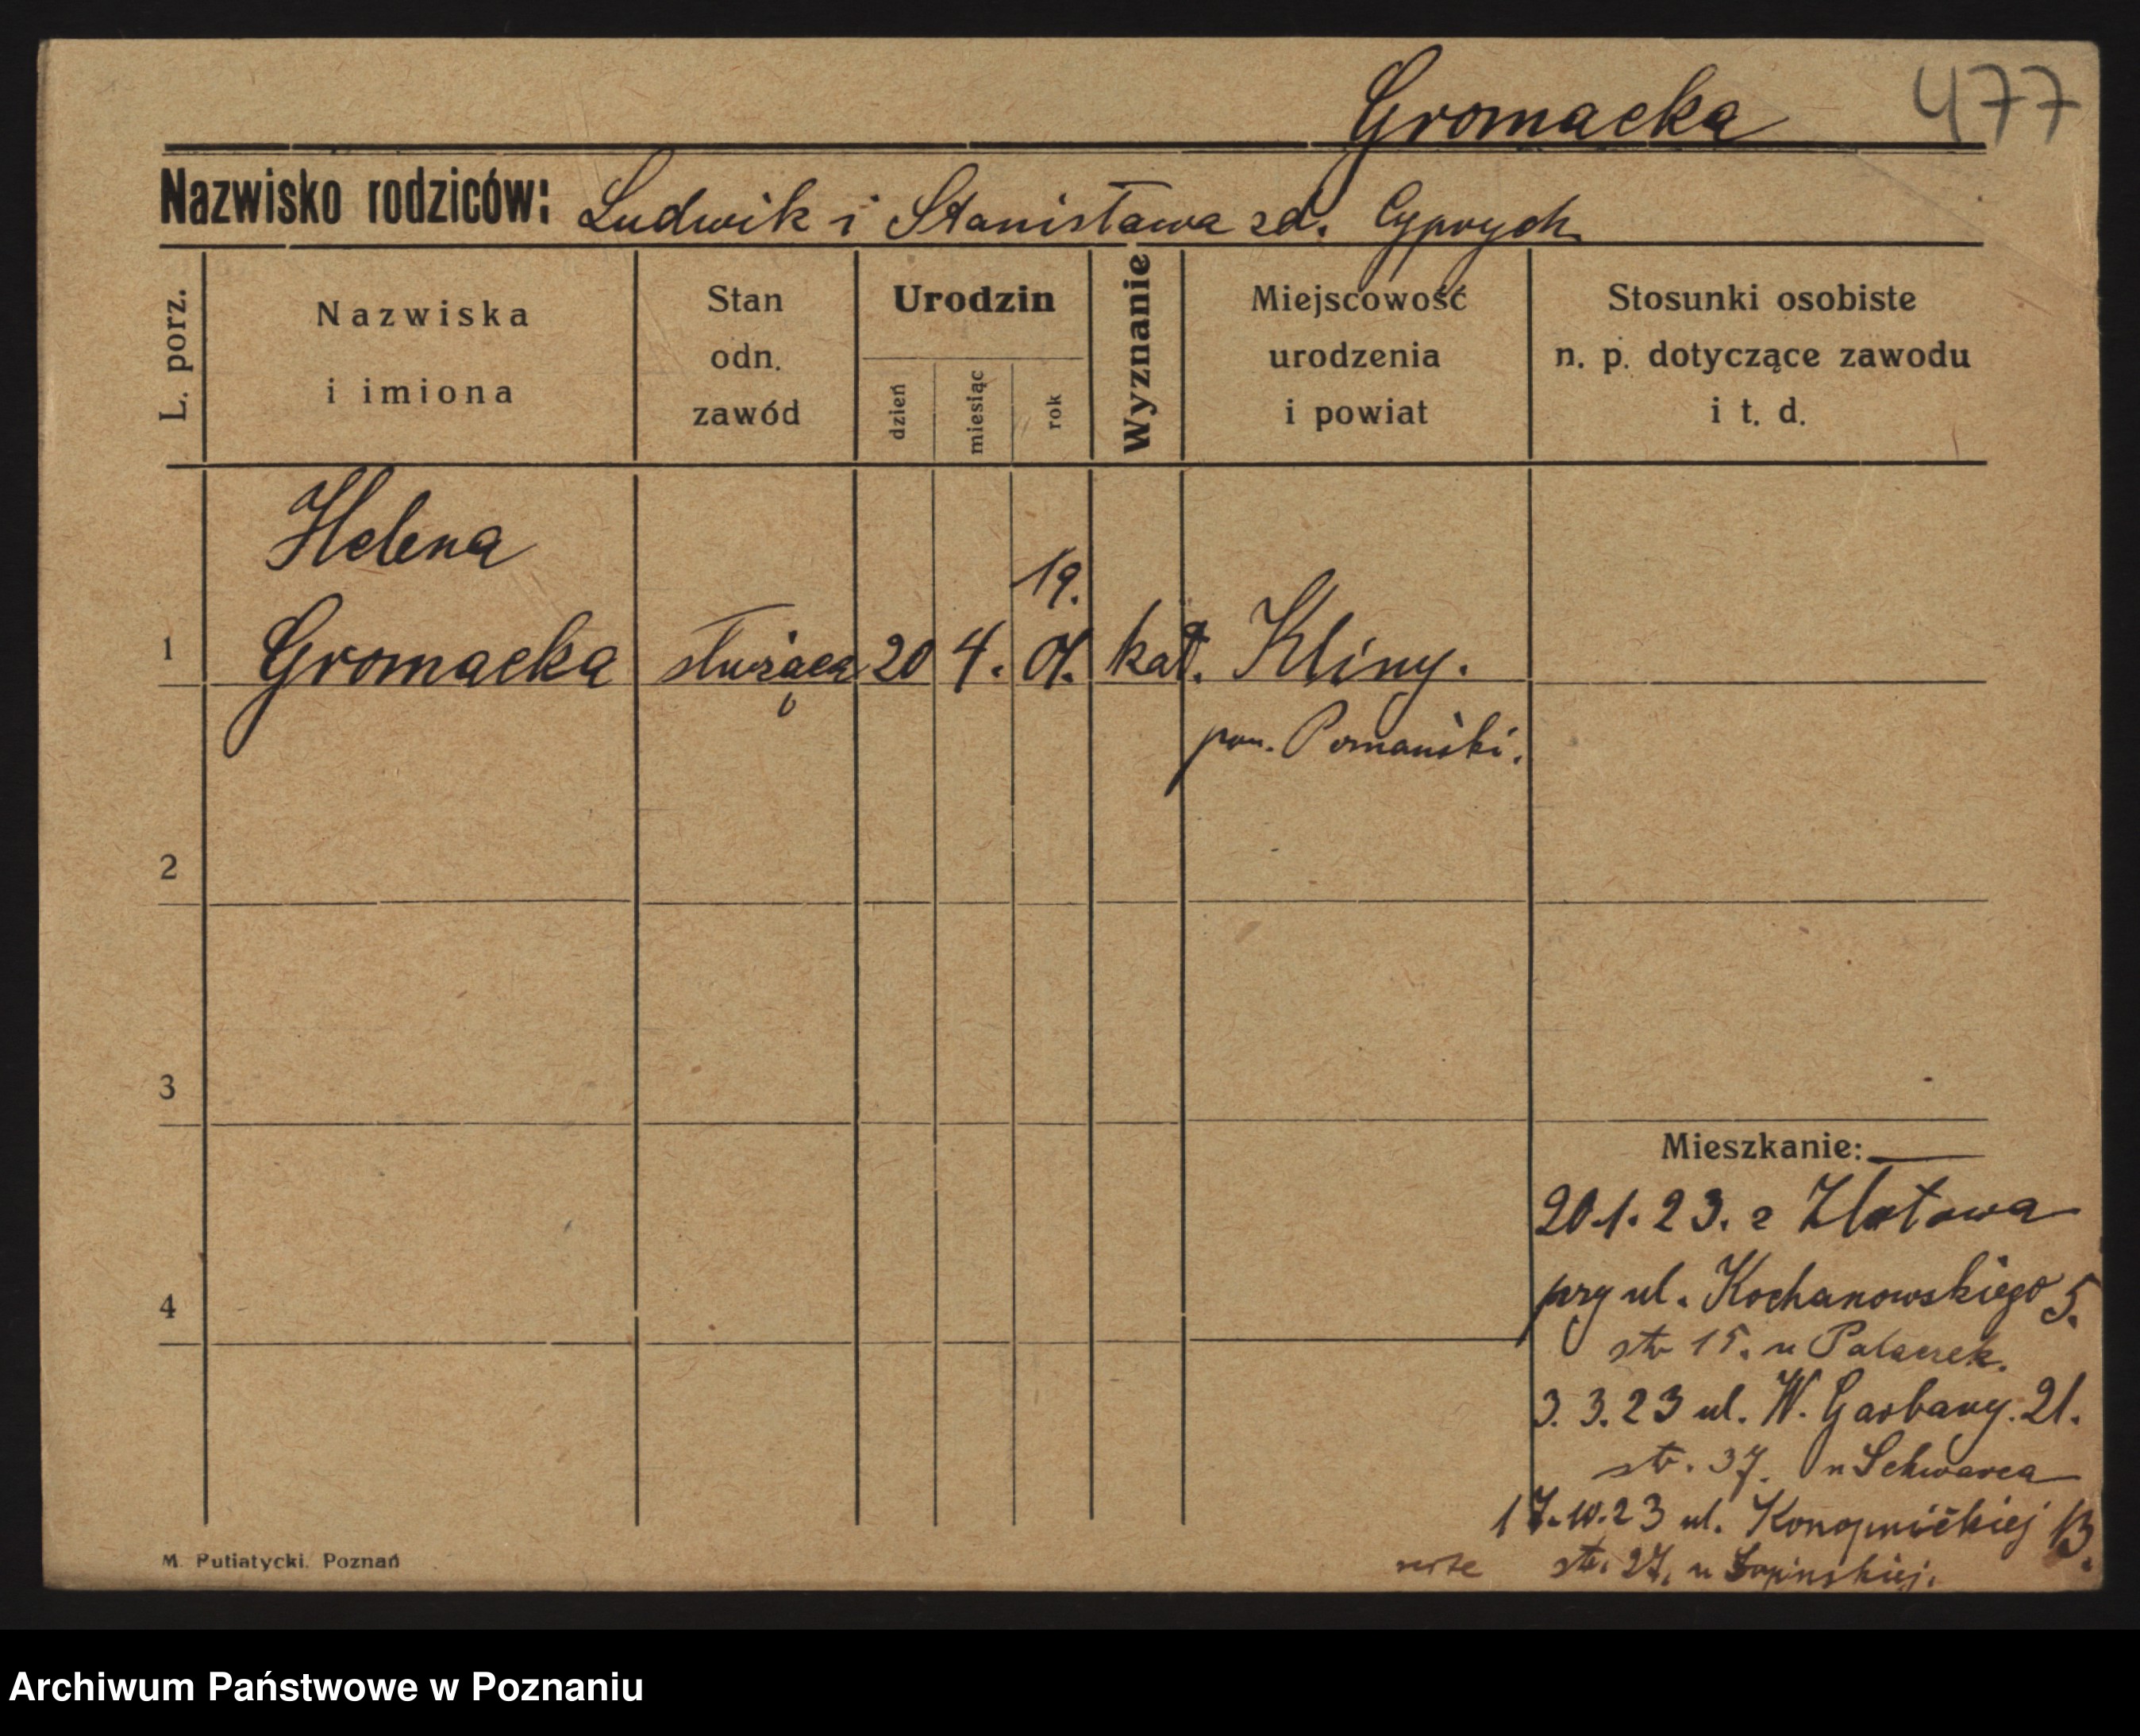 Gromacka 477
Nazwisko rodziców: Ludwik i Stanisława zd. Cyprych
L. porz.
Nazwiska
i imiona
Stan
odn.
zawód
Urodzin
dzień
miesiąc
rok
Wyznanie
Miejscowość
urodzenia
i powiat
Stosunki osobiste
n. p. dotyczące zawodu
i t. d.
Helena
19.
1 Gromacka służąca 20 4. 01. kat. Kliny.
pow. Poznański.
2
3
Mieszkanie:
20.1.23. z Zlotowa
4 przy ul. Kochanowskiego 5.
str 15. u Palaczek.
3. 3. 23 ul. W. Garbary. 21.
str. 37. u Schwarca
17.10.23 ul. Konopnickiej 13.
M. Putiatycki. Poznań
str. 27. u
Archiwum Państwowe w Poznaniu